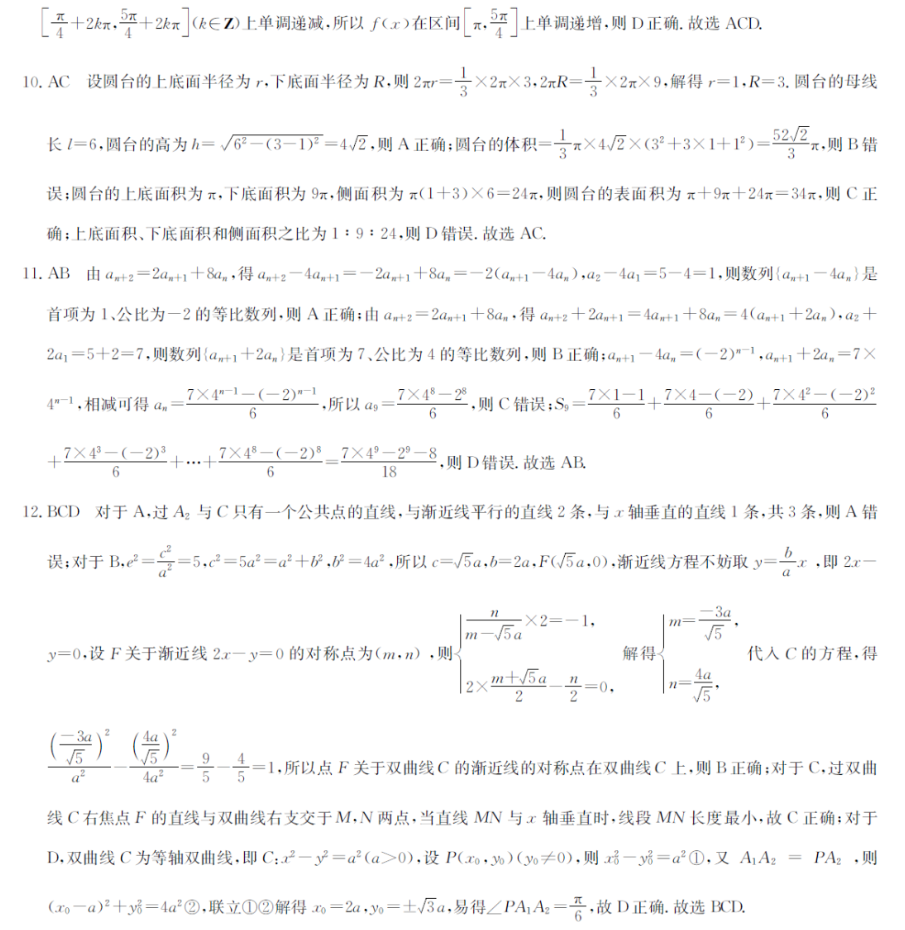 [π/4+2kπ,5π/4+2kπ](k∈Z)上单调递减,所以 f(x)在区间[π,5π/4]上单调递增,则 D 正确.故选 ACD.
10. AC 设圆台的上底面半径为 r,下底面半径为 R,则 2πr=1/3×2π×3,2πR=1/3×2π×9,解得 r=1,R=3.圆台的母线
长 l=6,圆台的高为 h=√(6²-(3-1)²)=4√2,则 A 正确;圆台的体积=1/3π×4√2×(3²+3×1+1²)=52√2/3π,则 B 错
误;圆台的上底面积为 π,下底面积为 9π,侧面积为 π(1+3)×6=24π,则圆台的表面积为 π+9π+24π=34π,则 C 正
确;上底面积、下底面积和侧面积之比为 1∶9∶24,则 D 错误.故选 AC.
11. AB 由 aₙ₊₂=2aₙ₊₁+8aₙ,得 aₙ₊₂-4aₙ₊₁=-2aₙ₊₁+8aₙ=-2(aₙ₊₁-4aₙ),a₂-4a₁=5-4=1,则数列{aₙ₊₁-4aₙ}是
首项为 1、公比为-2 的等比数列,则 A 正确;由 aₙ₊₂=2aₙ₊₁+8aₙ,得 aₙ₊₂+2aₙ₊₁=4aₙ₊₁+8aₙ=4(aₙ₊₁+2aₙ),a₂+
2a₁=5+2=7,则数列{aₙ₊₁+2aₙ}是首项为 7、公比为 4 的等比数列,则 B 正确;aₙ₊₁-4aₙ=(-2)ⁿ⁻¹,aₙ₊₁+2aₙ=7×
4ⁿ⁻¹,相减可得 aₙ=(7×4ⁿ⁻¹-(-2)ⁿ⁻¹)/6,所以 a₉=(7×4⁸-2⁸)/6,则 C 错误;S₉=(7×1-1)/6+(7×4-(-2))/6+(7×4²-(-2)²)/6
+(7×4³-(-2)³)/6+⋯+(7×4⁸-(-2)⁸)/6=(7×4⁹-2⁹-8)/18,则 D 错误.故选 AB.
12. BCD 对于 A,过 A₂ 与 C 只有一个公共点的直线,与渐近线平行的直线 2 条,与 x 轴垂直的直线 1 条,共 3 条,则 A 错
误;对于 B,e²=c²/a²=5,c²=5a²=a²+b²,b²=4a²,所以 c=√5a,b=2a,F(√5a,0),渐近线方程不妨取 y=b/a x ,即 2x-
y=0,设 F 关于渐近线 2x-y=0 的对称点为(m,n) ,则{n/(m-√5a)×2=-1, 2×(m+√5a)/2-n/2=0, 解得{m=-3a/√5, n=4a/√5, 代入 C 的方程,得
(-3a/√5)²/a²-(4a/√5)²/4a²=9/5-4/5=1,所以点 F 关于双曲线 C 的渐近线的对称点在双曲线 C 上,则 B 正确;对于 C,过双曲
线 C 右焦点 F 的直线与双曲线右支交于 M,N 两点,当直线 MN 与 x 轴垂直时,线段 MN 长度最小,故 C 正确;对于
D,双曲线 C 为等轴双曲线,即 C:x²-y²=a²(a>0),设 P(x₀,y₀)(y₀≠0),则 x₀²-y₀²=a²①,又 A₁A₂ = PA₂ ,则
(x₀-a)²+y₀²=4a²②,联立①②解得 x₀=2a,y₀=±√3a,易得∠PA₁A₂=π/6,故 D 正确.故选 BCD.